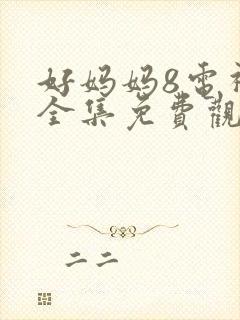 好妈妈8电视
全集免費觀
二二